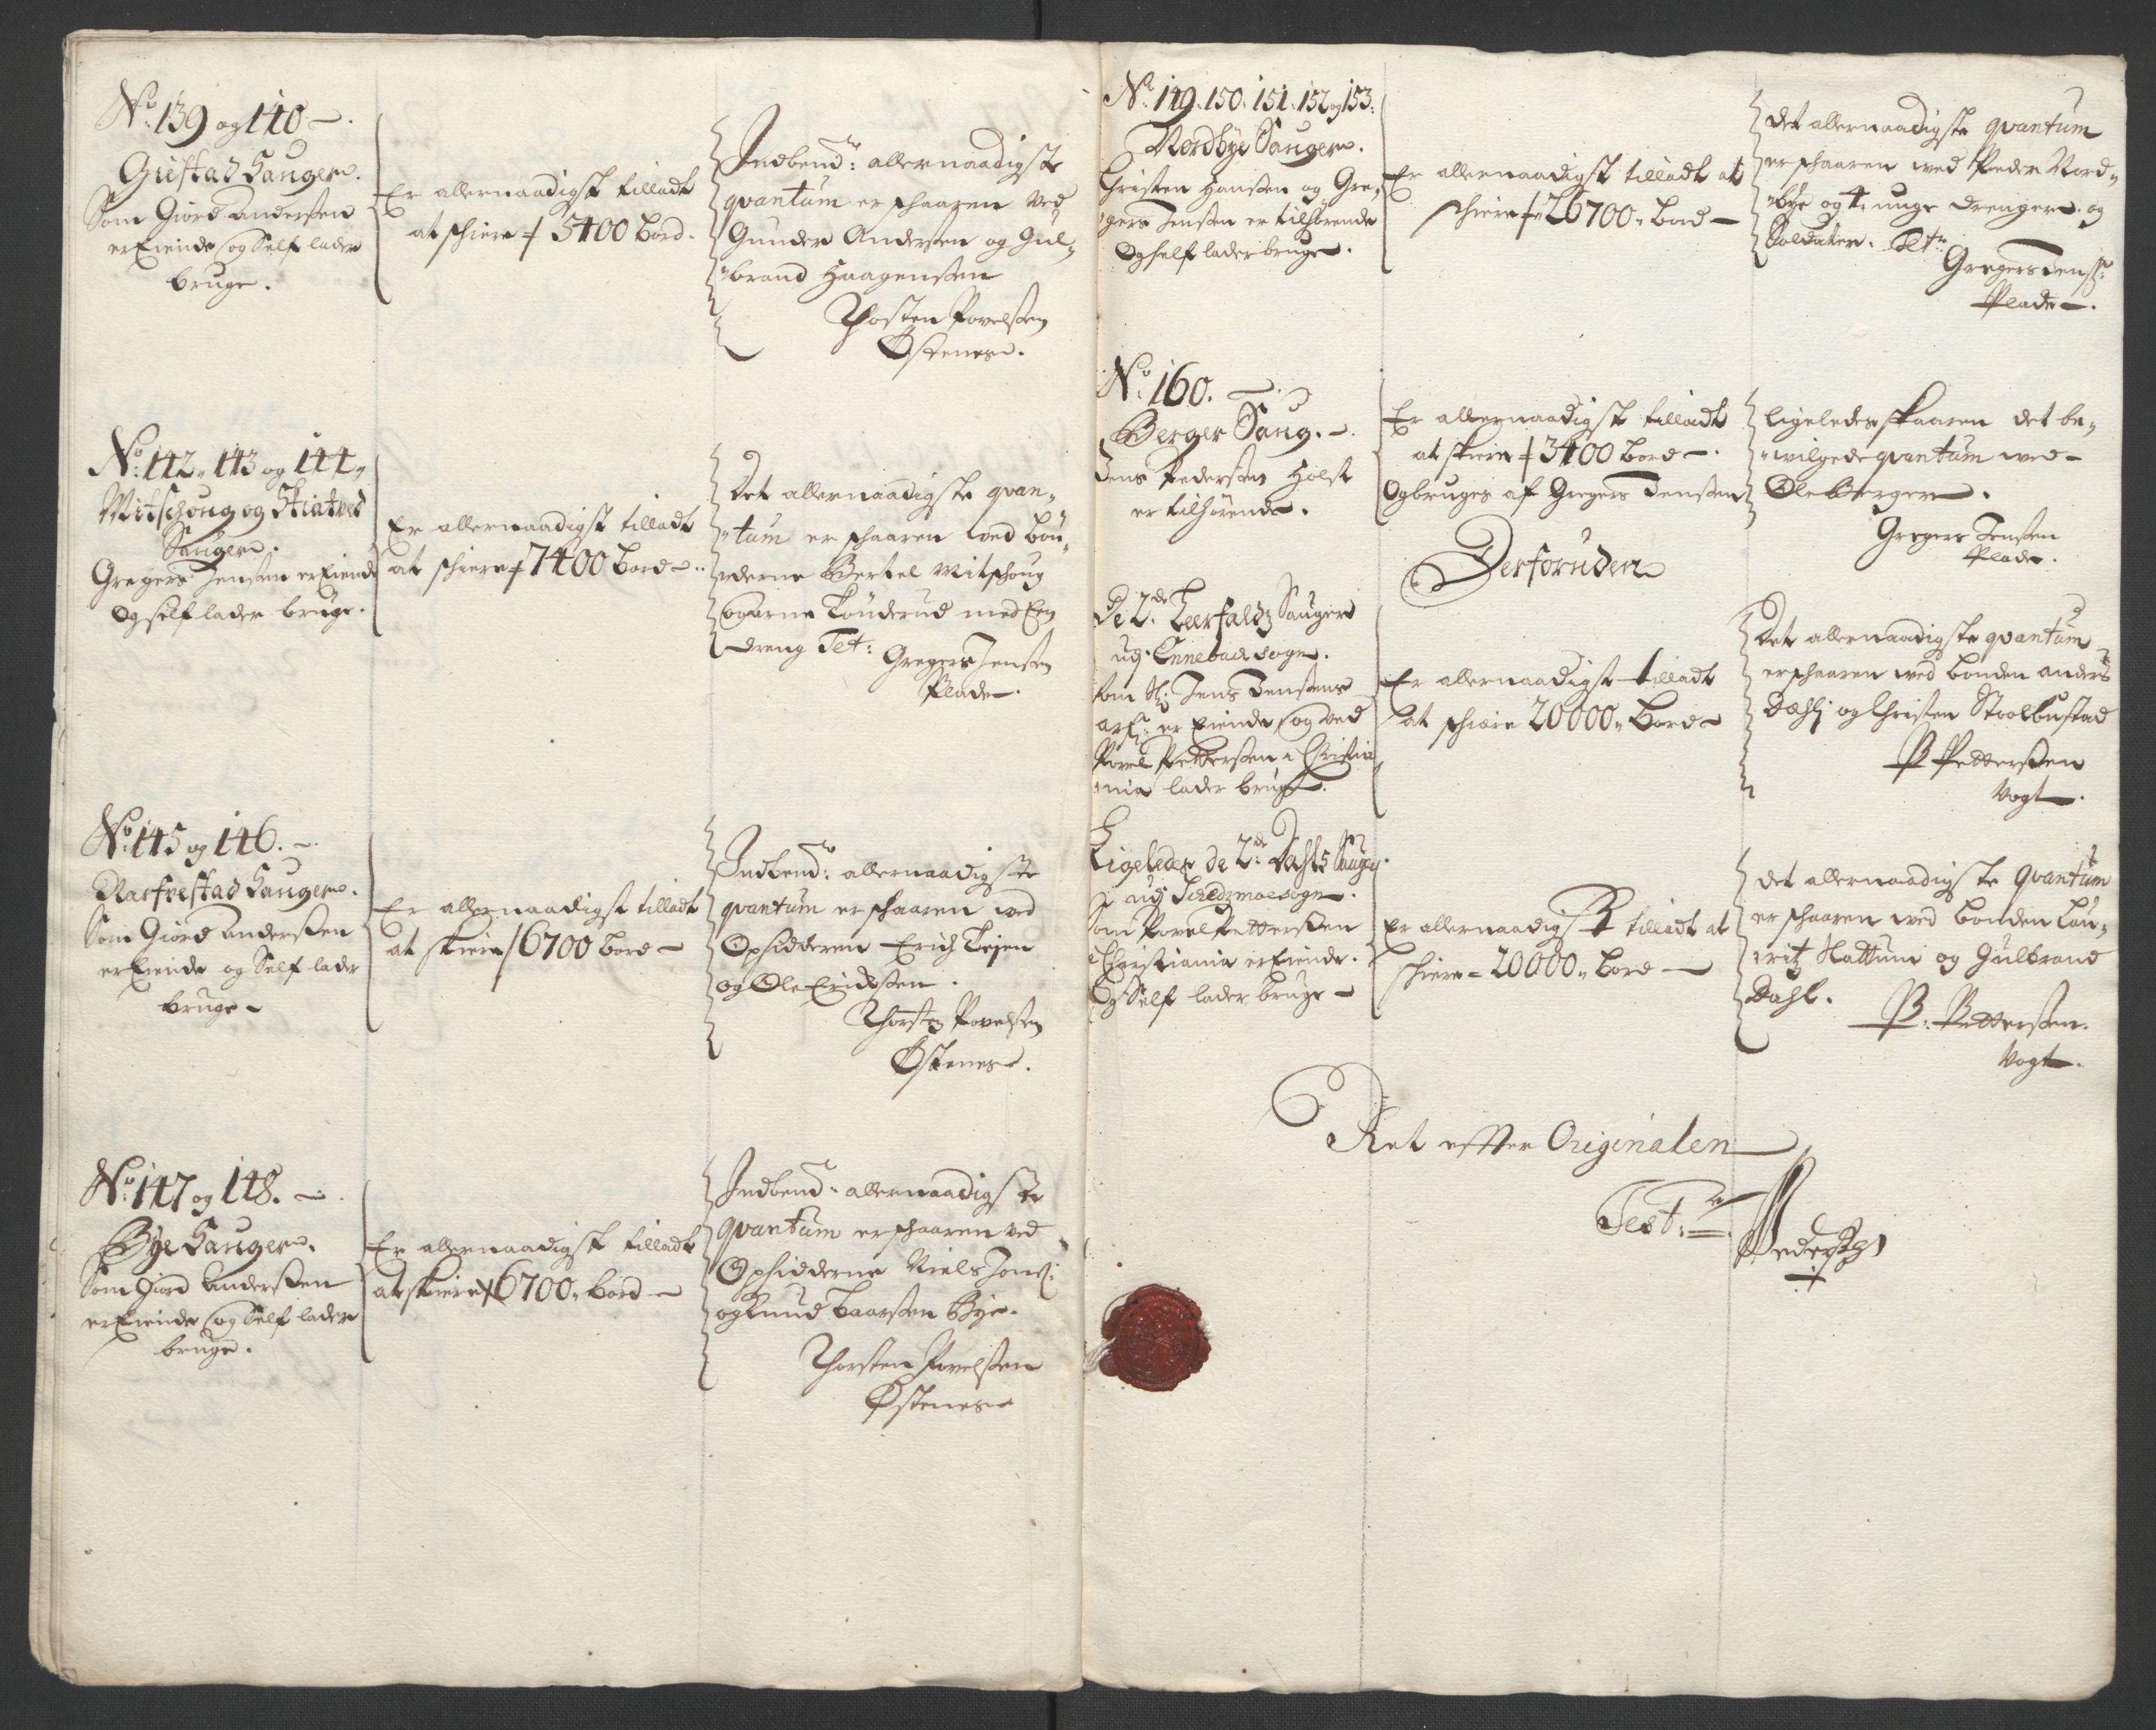 No: 139 og 140 -.
Giestad Sauger.
Som Giord Anderßen
er Eiende og Self lader
bruge.
Er allernaadigst tilladt
at schiere 5400 Bord.
Indbend: allernaadigste
quantum er schaaren Ved
Gunder Anderßen og Gul-
brand Haagenßen
Thosten Povelßen
Østenes.
No: 142, 143 og 144,
Mitschoug og Schiatved
Sauger.
Gregers Jenßen er Eiende
Og self lader bruge.
Er allernaadigst tilladt
at schiere 7400 Bord -
Det allernaadigste quan-
tum er schaaren Ved Bøn-
derne Bertel Mitschoug
Gaarne Tønderud med En
dreng Tet:
Gregers Jenßen
Plade.
No: 145 og 146. -
Narfvestad Sauger.
Som Giord Anderßen
er Eiende og Self lader
bruge -
Er allernaadigst tilladt
at skiere 6700 Bord -
Indbend: allernaadigste
quantum er schaaren ved
Opsidderne Erich Teien
og Ole Erichßen.
Thorsten Povelßen
Østenes.
No: 147 og 148. -
Bye Sauger.
Som Giord Anderßen
er Eiende og Self lader
bruge.
Er allernaadigst tilladt
at skiere 6700 Bord -
Indbend: allernaadigste
quantum er schaaren ved
Opsidderne Niels Jonß:
og Knud Laarßen Bye.
Thorsten Povelßen
Østenes
No: 149. 150. 151. 152 og 153.
Nordbye Sauger.
Christen Hanßen og Gre-
gers Jenßen er tilhørende
Og self lader bruge.
Er allernaadigst tilladt at
schiere 26700 Bord -
Det allernaadigste quantum
er schaaren ved Peder Nord-
bye og 4 unge drenger og
Soldater. Tet:
Gregers Jenß:
Plade -.
No: 160.
Berger Saug. -
Jens Pederßen Holst
er tilhørende.
Er allernaadigst tilladt
at skiere 3400 Bord -.
Og bruges af Gregers Jenßen
ligeledes skaaren det be-
wilgede quantum wed
Ole Berger.
Gregers Jenßen
Plade.
Derforuden
De 2de Leerfaldz Sauger
udj Ennebach sogn.
som Sl: Jens Jenßens
arf: er Eiende og ved
Povel Petterßen i Christia
nia lader bruge.
Er allernaadigst tilladt
at schiere 20000 Bord -
Det allernaadigste quantum
er schaaren ved bonden anders
Dæhlj og Christen Stoelbustad
P Petterßen
Vogt -.
Ligeledes de 2de Dahls Sauger
udj Schedzmoe sogn.
som Povel Petterßen
i Christiania er Eiende.
Og Self lader bruge -
Er allernaadigst tilladt at
schiere - 20000 Bord -
det allernaadigste Quantum
er schaaren ved bonden Lau-
ritz Nattum og Gulbrand
Dahl.
P: Petterßen.
Vogt -.
Ret effter Originalen
Test: